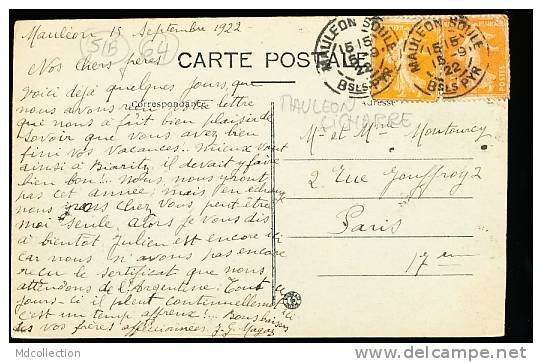 Mauléon 15 Septembre 1922
SIB 64
CARTE POSTALE
MAULEON SOULE
15 15
15 - 9
22
BSES PYR
MAULEON SOULE
15 15
15 - 9
22
BSES PYR
POSTES
Correspondance
Adresse
MAULEON
LICHARRE
Nos chers frères
Voici déjà quelques jours que
nous avons votre lettre
que nous a fait bien plaisir de
savoir que vous avez bien
fini vos vacances. mieux vaut
ainsi à Biaritz il devait y faire
bien bon!... Nous, nous y ront
pas cet année, mais
nous chez vous peut être
moi seule. Alors je vous dis
à bientot Julien est encore ici
car nous n'avons pas encore
recu le sertificat que nous
attendons de l'Argentine: Tout
jours-ci il pleut contenuellement
c'est un temp affreux!... Bons baisers
de vos frères affectionnés J. G.
Mr et Mme
2 Rue Gouffroy 2
Paris
17 em
Mdcollection
http://mdcollection.delcampe.net